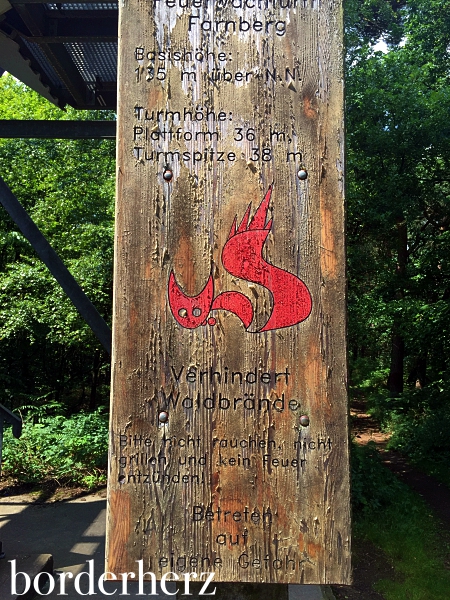 Feuerwachturm
Farnberg
Basishöhe:
135 m über N.N.
Turmhöhe:
Plattform 36 m,
Turmspitze 38 m
Verhindert
Waldbrände
Bitte nicht rauchen, nicht
grillen und kein Feuer
entzünden!
Betreten
auf
eigene Gefahr
borderherz